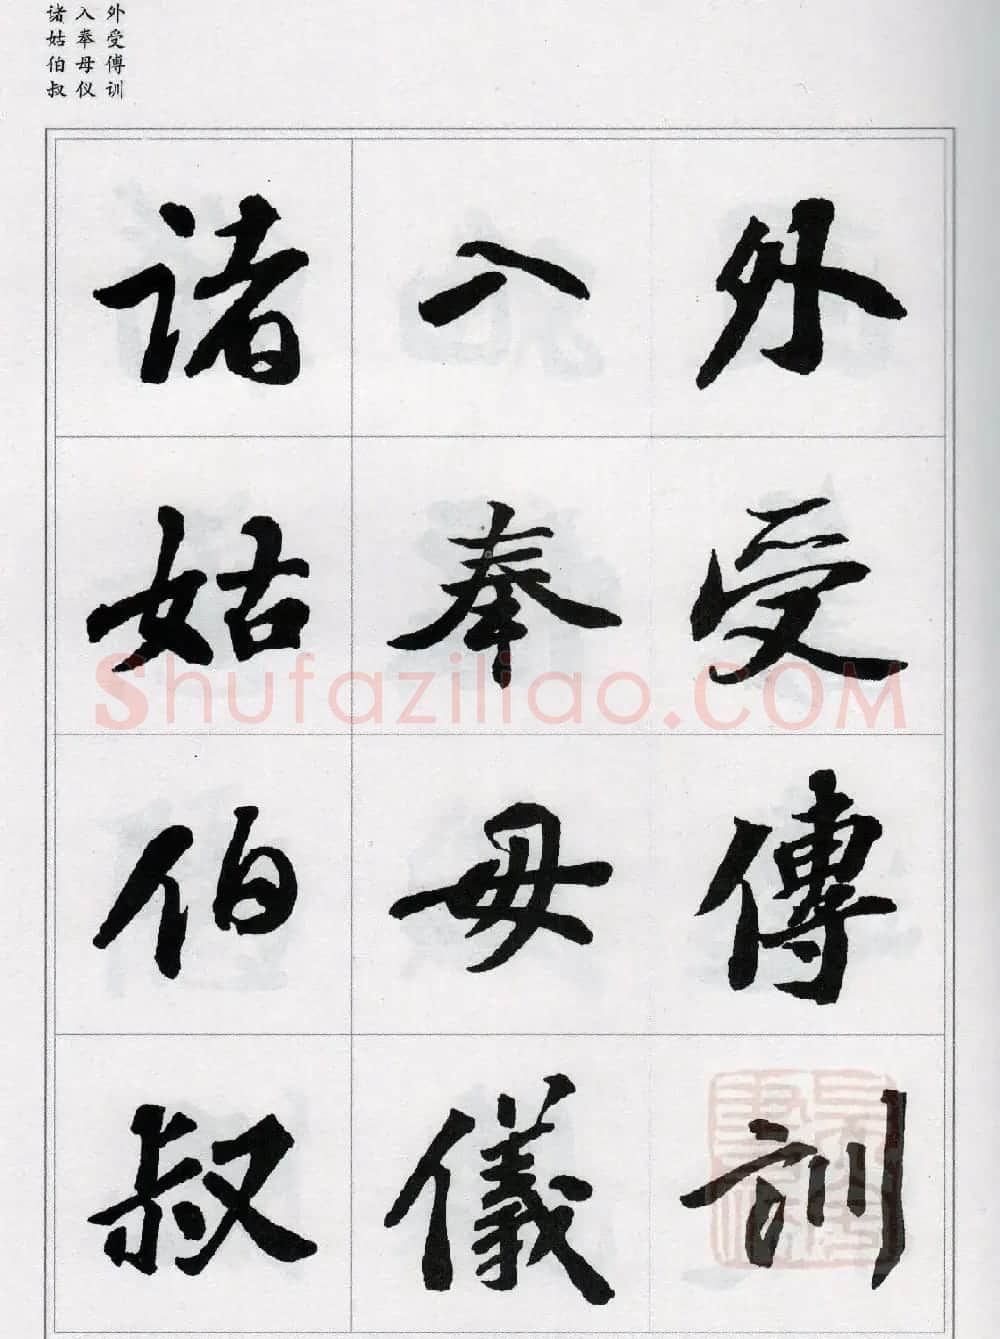 外受傅训
入奉母仪
诸姑伯叔
外受傅訓
入奉母儀
諸姑伯叔
Shufaziliao.COM